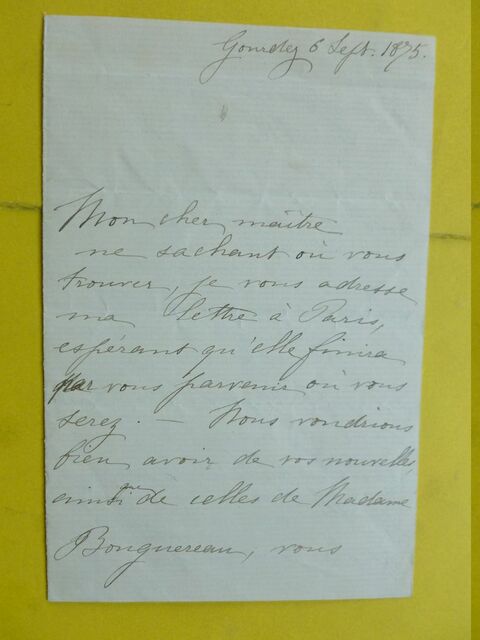 Gourdez 6 Sept. 1875.
Mon cher maître
ne sachant où vous
trouver, je vous adresse
ma lettre à Paris,
espérant qu'elle finira
par vous parvenir où vous
serez. — Nous voudrions
bien avoir de vos nouvelles,
ainsi que de celles de Madame
Bouguereau, vous